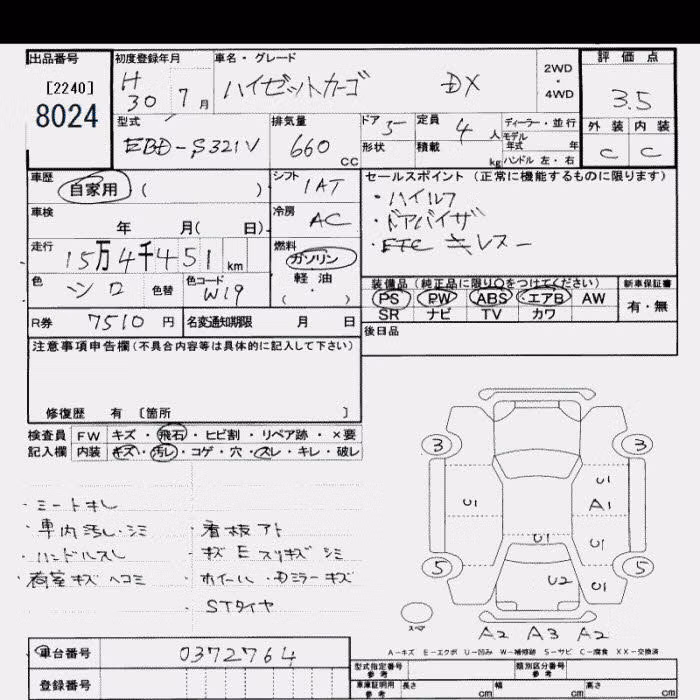 出品番号
[2240]
8024
初度登録年月
H 30 7 月
車名・グレード
ハイゼットカーゴ DX
2WD
・
4WD
評価点
3.5
外装 内装
C C
型式
EBD-S321V
排気量
660 CC
ドア 5
形状
定員 4 人
積載 kg
ディーラー・並行
モデル
年式 年
ハンドル 左・右
車歴
自家用 ( )
車検
年 月( 日)
走行
15万4千451 km
色
シロ
色替
色コード
W19
シフト
IAT
冷房
AC
燃料
ガソリン
軽油
( ・ )
セールスポイント(正常に機能するものに限ります)
・ハイルフ
・ドアバイザ
・ETC キレス
装備品(純正品に限り○をつけてください)
PS PW ABS エアB AW
SR ナビ TV カワ
新車保証書
有・無
R券 7510 円
名変通知期限 月 日
後日品
注意事項申告欄(不具合内容等は具体的に記入して下さい)
修復歴 有 〔箇所 〕
検査員 FW キズ・飛石・ヒビ割・リペア跡・×要
記入欄 内装 キズ・汚レ・コゲ・穴・スレ・キレ・破レ
・ミートキレ
・車内汚レ・シミ
・ハンドルスレ
・荷室キズヘコミ
・看板アト
・キズEスリキズシミ
・ホイール・Dミラーキズ
・STタイヤ
3 3
U1
U1
A1
U1
U1
5 5
U2
U1
スペア
A2 A3 A2
A-キズ E-エクボ U-凹み W-補修跡 S-サビ C-腐食 XX-交換済
車台番号 0372764
登録番号
型式指定番号
参考
類別区分番号
参考
車庫証明用
参考
長さ cm
幅 cm
高さ cm